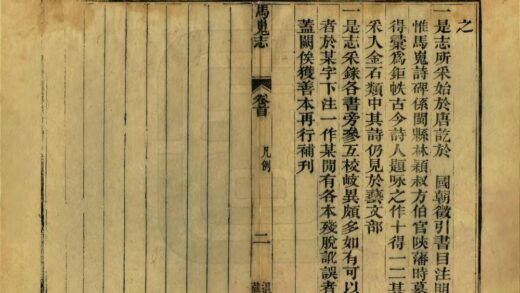 之
一是志所采始於唐訖於　國朝徵引書目注明
惟馬嵬詩碑係閩縣林穎叔方伯官陝藩時募
得彙爲鉅帙古今詩人題咏之作十得一二其
采入金石類中其詩仍見於藝文部
一是志采錄各書旁參互校岐異頗多如有可以
者於某字下注一作某閒有各本殘脫訛誤者
蓋闕俟獲善本再行補刊
馬嵬志
卷首
凡例
二